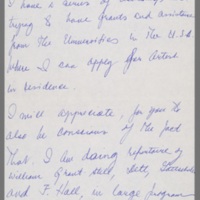 I have a series of
trying to have grants and assistance
from the Universities in the U.S.A.
where I can apply for artist
in residence.
I will appreciate, for you to
also be conscious of the fact
that I am doing repertoire of
William Grant Still,
and F. Hall, in large program